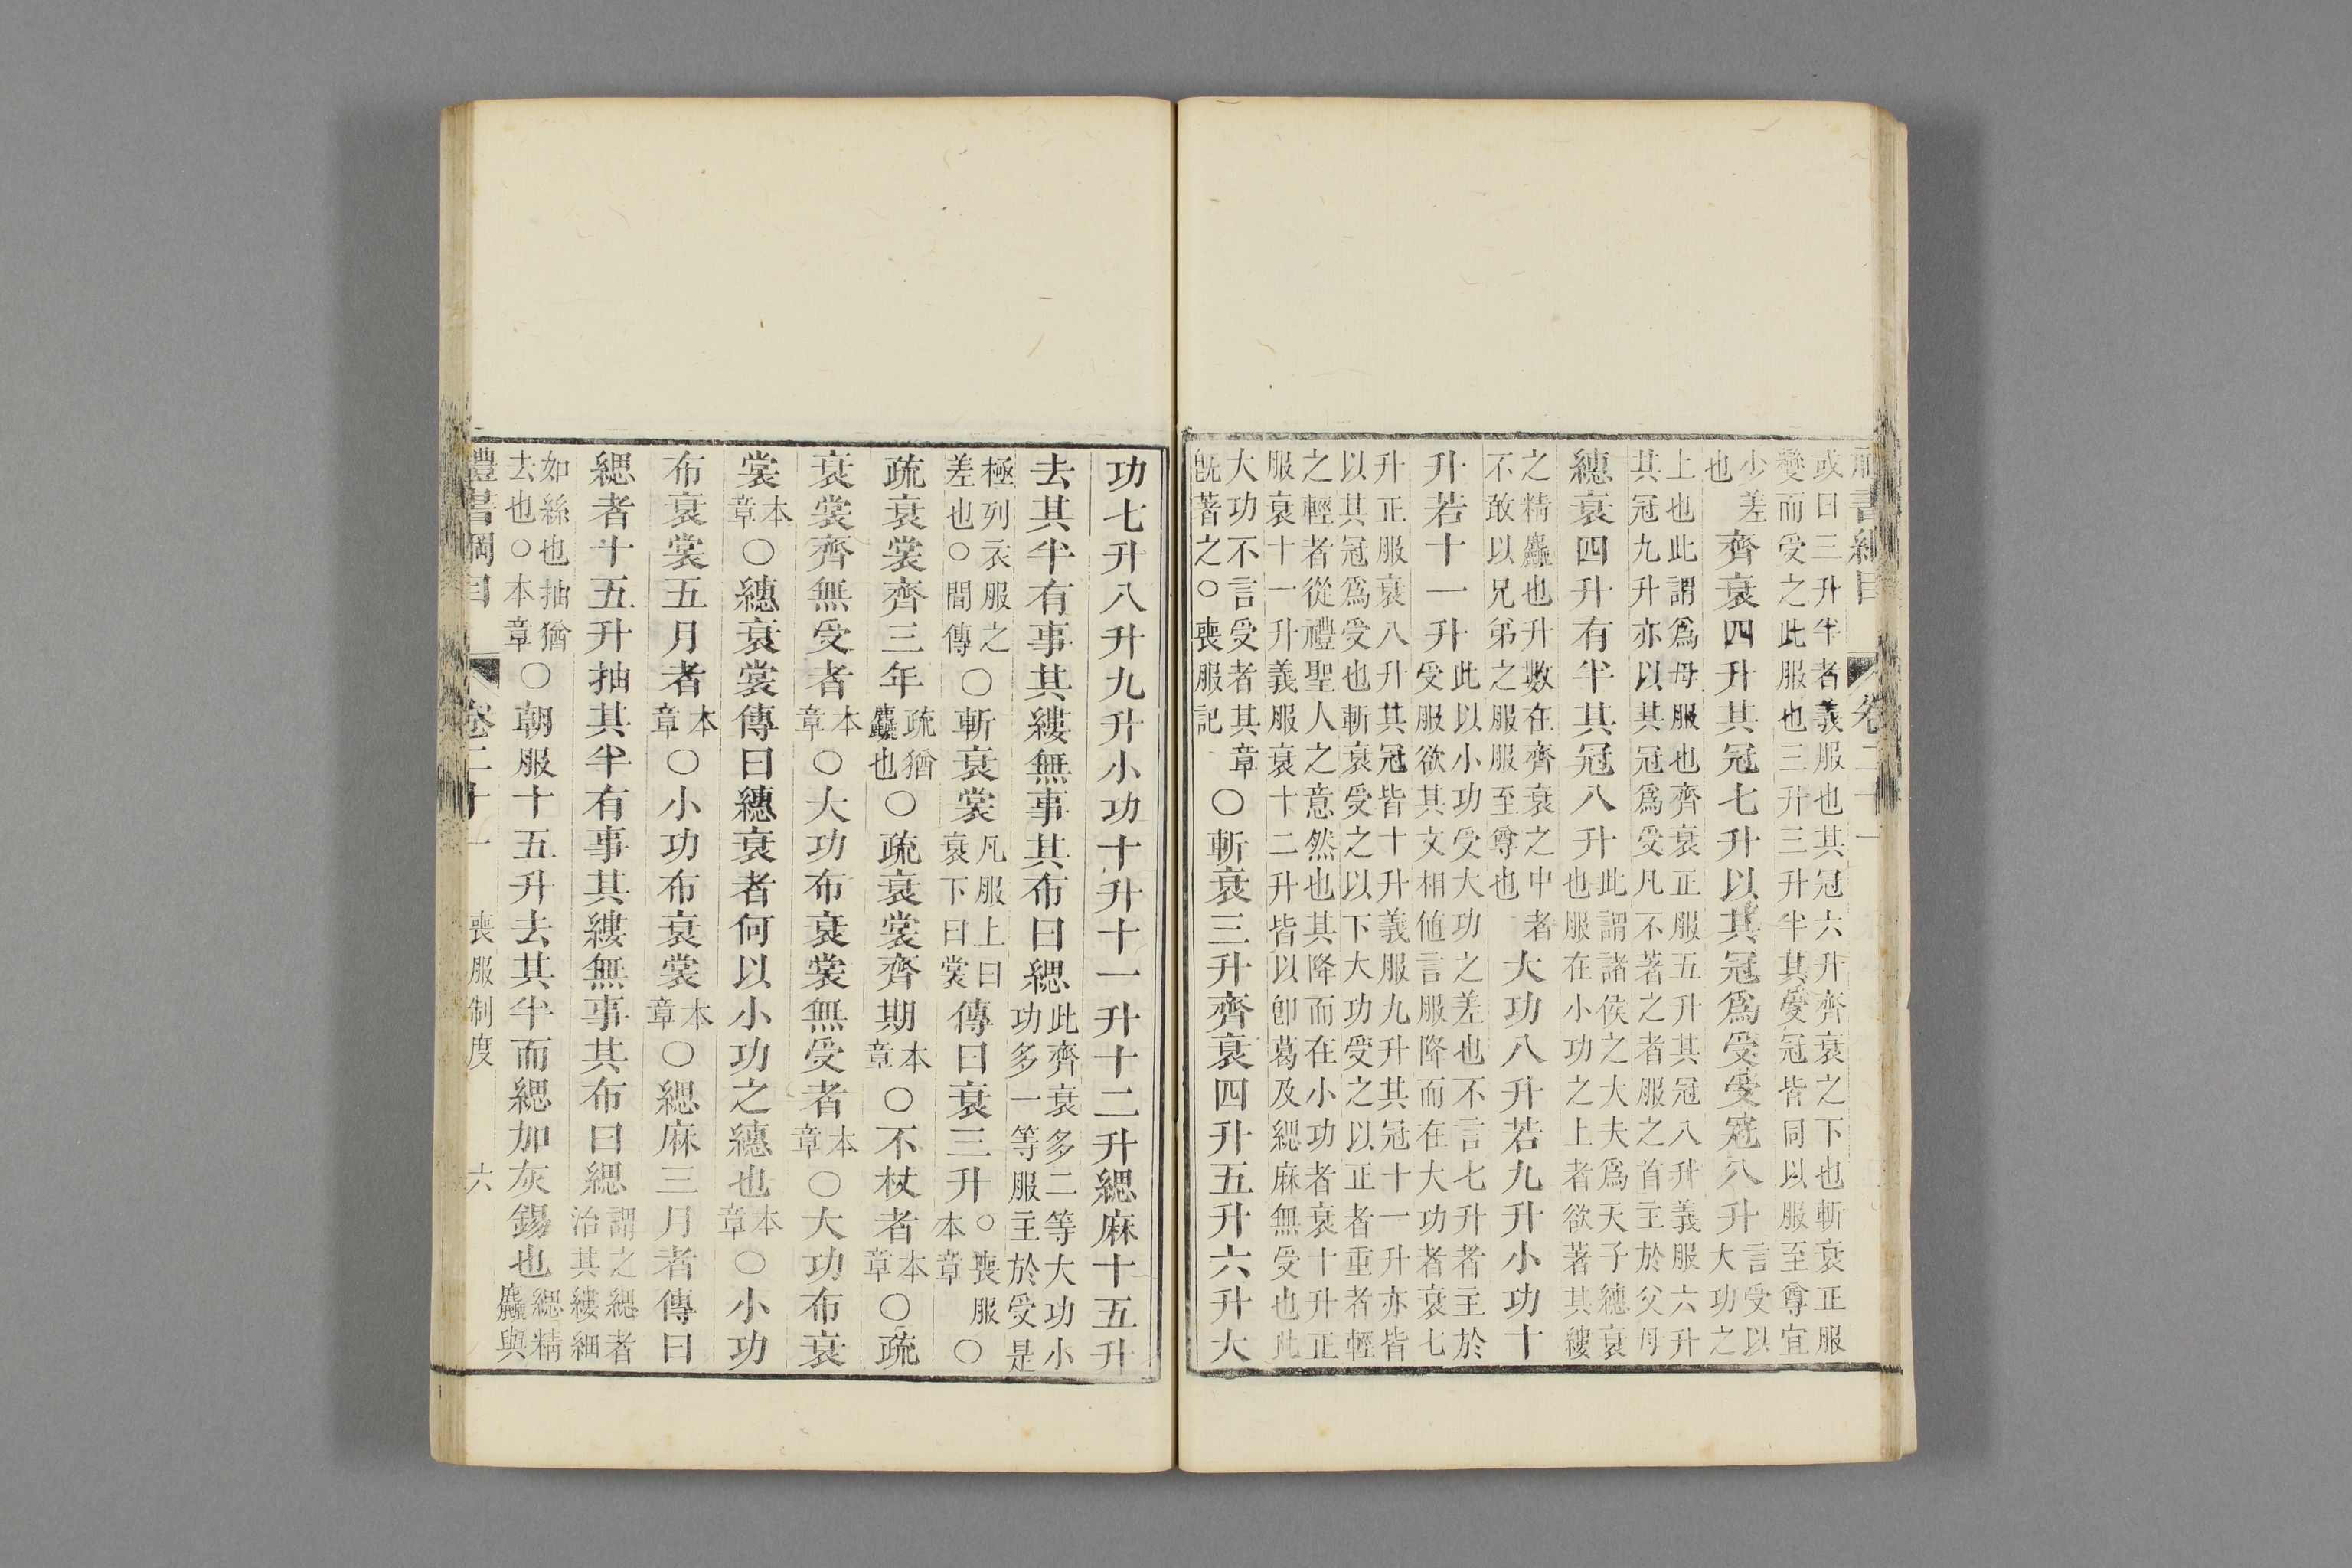 禮書綱目 卷二十一
或曰三升半者義服也其冠六升齊衰之下也斬衰正服
變而受之此服也三升三升半其受冠皆同以服至尊宜
少差
也
齊衰四升其冠七升以其冠爲受受冠八升
言受以
大功之
上也此謂爲母服也齊衰正服五升其冠八升義服六升
其冠九升亦以其冠爲受凡不著之者服之首主於父母
繐衰四升有半其冠八升
此謂諸侯之大夫爲天子繐衰
也服在小功之上者欲著其縷
之精麤也升數在齊衰之中者
不敢以兄弟之服服至尊也
大功八升若九升小功十
升若十一升
此以小功受大功之差也不言七升者主於
受服欲其文相値言服降而在大功者衰七
升正服衰八升其冠皆十升義服九升其冠十一升亦皆
以其冠爲受也斬衰受之以下大功受之以正者重者輕
之輕者從禮聖人之意然也其降而在小功者衰十升正
服衰十一升義服衰十二升皆以卽葛及緦麻無受也此
大功不言受者其章
旣著之○喪服記
○斬衰三升齊衰四升五升六升大
功七升八升九升小功十升十一升十二升緦麻十五升
去其半有事其縷無事其布曰緦
此齊衰多二等大功小
功多一等服主於受是
極列衣服之
差也○間傳
○斬衰裳
凡服上曰
衰下曰裳
傳曰衰三升
○喪服
本章
○
疏衰裳齊三年
疏猶
麤也
○疏衰裳齊期
本
章
○不杖者
本
章
○疏
衰裳齊無受者
本
章
○大功布衰裳無受者
本
章
○大功布衰
裳
本
章
○繐衰裳傳曰繐衰者何以小功之繐也
本
章
○小功
布衰裳五月者
本
章
○小功布衰裳
本
章
○緦麻三月者傳曰
緦者十五升抽其半有事其縷無事其布曰緦
謂之緦者
治其縷細
如絲也抽猶
去也○本章
○朝服十五升去其半而緦加灰錫也
緦精
麤與
禮書綱目 卷二十一 喪服制度 六